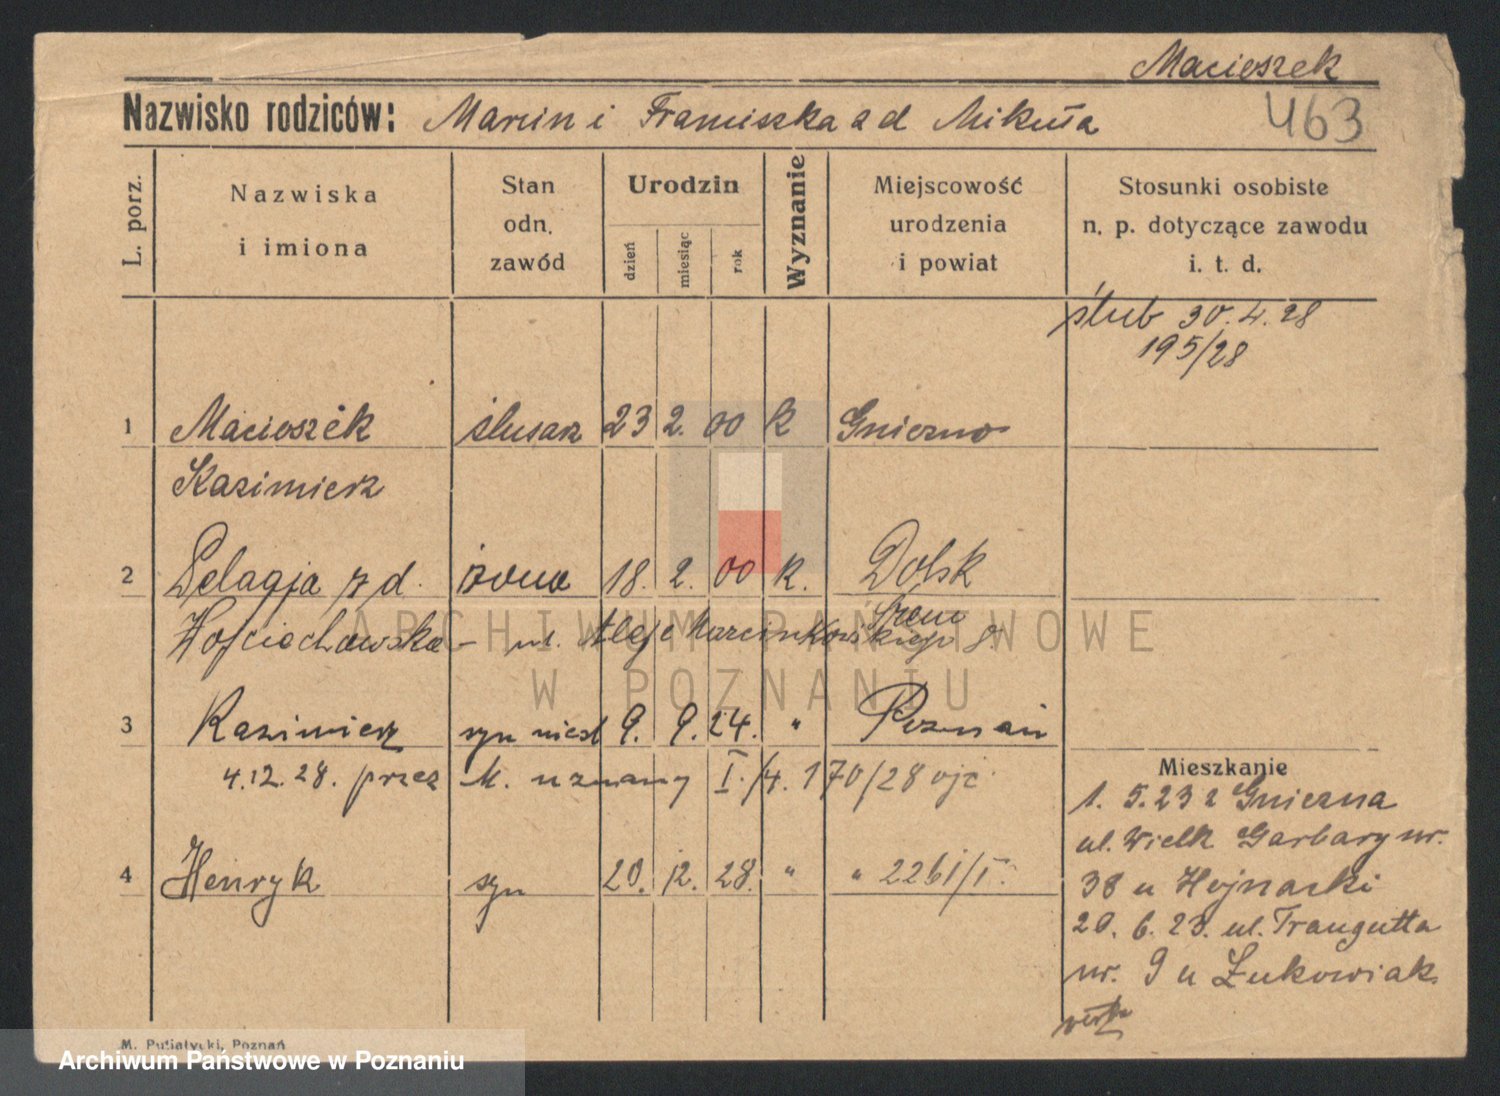 Macioszek
Nazwisko rodziców: Marcin i Franciszka z d Mikuła
463
L. porz.
Nazwiska
i imiona
Stan
odn.
zawód
Urodzin
dzień
miesiąc
rok
Wyznanie
Miejscowość
urodzenia
i powiat
Stosunki osobiste
n. p. dotyczące zawodu
i. t. d.
ślub 30.4.28
195/28
1 Macioszek ślusarz 23 2. 00 k Gniezno
Kazimierz
2 Pelagja z d. żona 18. 2. 00 k. Dolsk
Śrem
Wojciechowska – ul. Aleje Marcinkowskiego 8.
3 Kazimierz syn nieśl 9. 9. 24. " Poznań
4.12.28. przez M. uznany I./4. 170/28 ojc.
4 Henryk syn 20. 12. 28. " " 2261/I.
Mieszkanie
1. 5.23 z Gniezna
ul. Wielk Garbary nr.
38 u Hojnacki
20. 6. 23. ul. Traugutta
nr. 9 u Łukowiak
M. Putiatycki, Poznań
ARCHIWUM PAŃSTWOWE
W POZNANIU
Archiwum Państwowe w Poznaniu